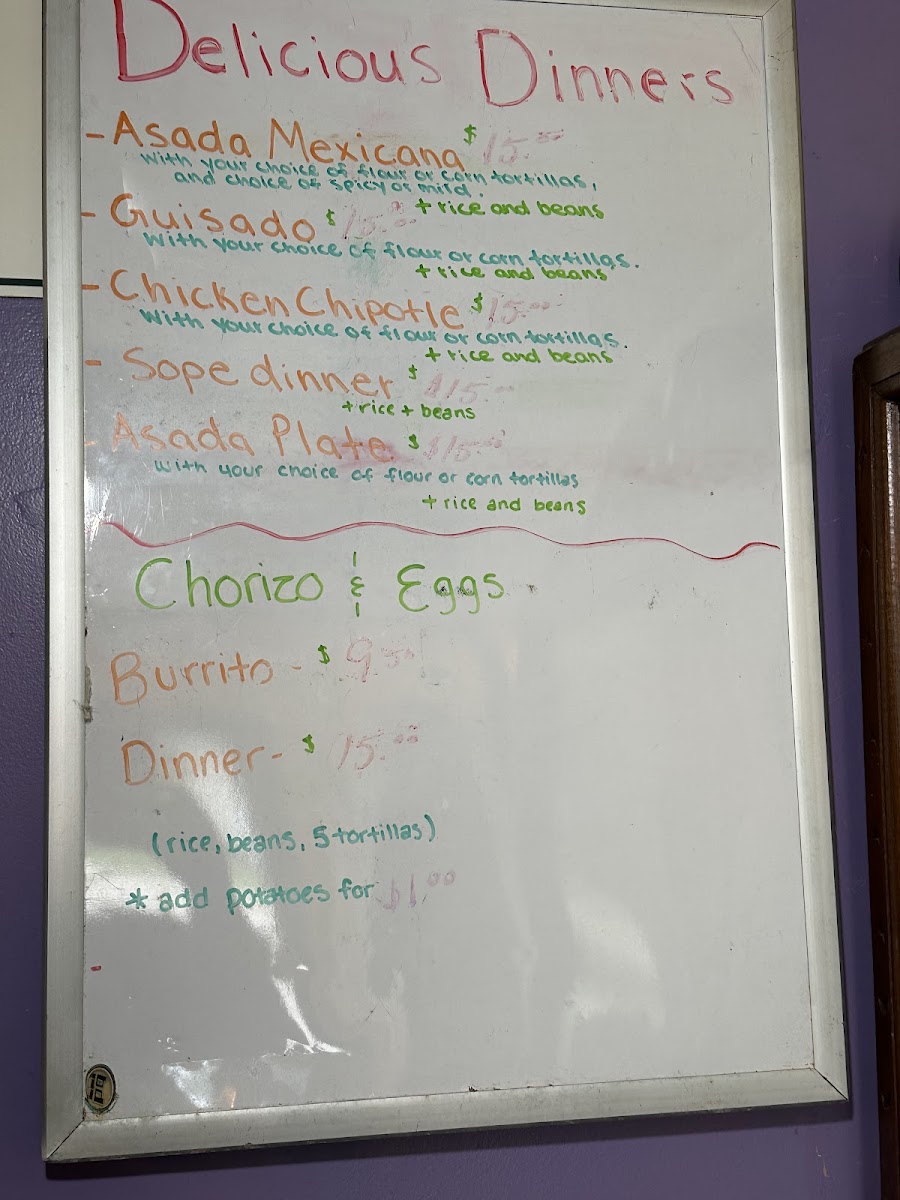 Delicious Dinners
- Asada Mexicana $15.00
with your choice of flour or corn tortillas,
and choice of spicy or mild.
+ rice and beans
- Guisado $15.00
with your choice of flour or corn tortillas.
+ rice and beans
- Chicken Chipotle $15.00
with your choice of flour or corn tortillas.
+ rice and beans
- Sope dinner $ $15.
+ rice + beans
- Asada Plate $ $15.00
with your choice of flour or corn tortillas
+ rice and beans
Chorizo & Eggs
Burrito - $9.50
Dinner - $15.00
(rice, beans, 5 tortillas)
* add potatoes for $1.00